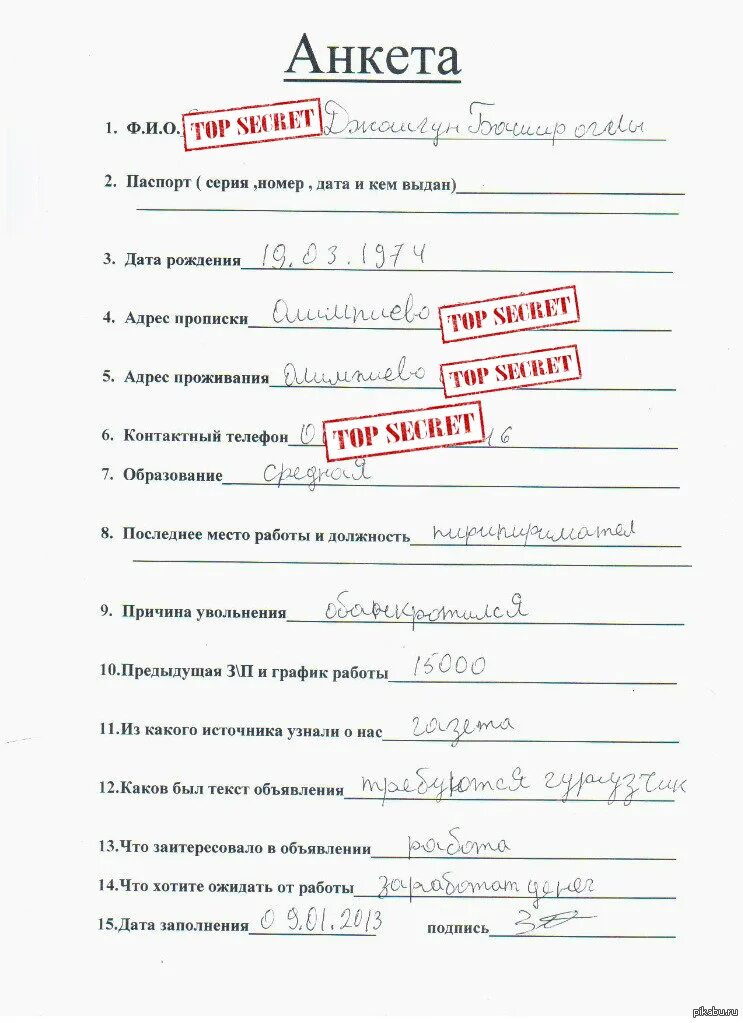 Анкета
1. Ф.И.О. TOP SECRET Джошгун Башир оглы
2. Паспорт ( серия ,номер , дата и кем выдан)
3. Дата рождения 19.03.1974
4. Адрес прописки Олимпиево TOP SECRET
5. Адрес проживания Олимпиево TOP SECRET
6. Контактный телефон 0 TOP SECRET 16
7. Образование средная
8. Последнее место работы и должность пирипиримател
9. Причина увольнения обанкротился
10.Предыдущая З\П и график работы 15000
11.Из какого источника узнали о нас газета
12.Каков был текст объявления требуются гурузчик
13.Что заитересовало в объявлении работа
14.Что хотите ожидать от работы заработат денег
15.Дата заполнения 09.01.2013 подпись
pikabu.ru